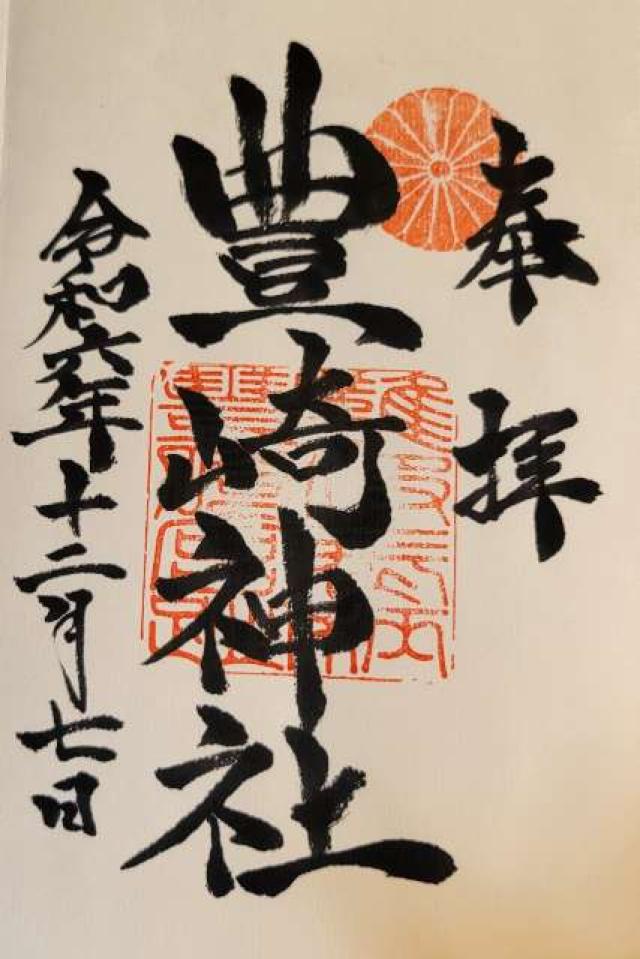 奉拝
豊崎神社
令和六年十二月七日